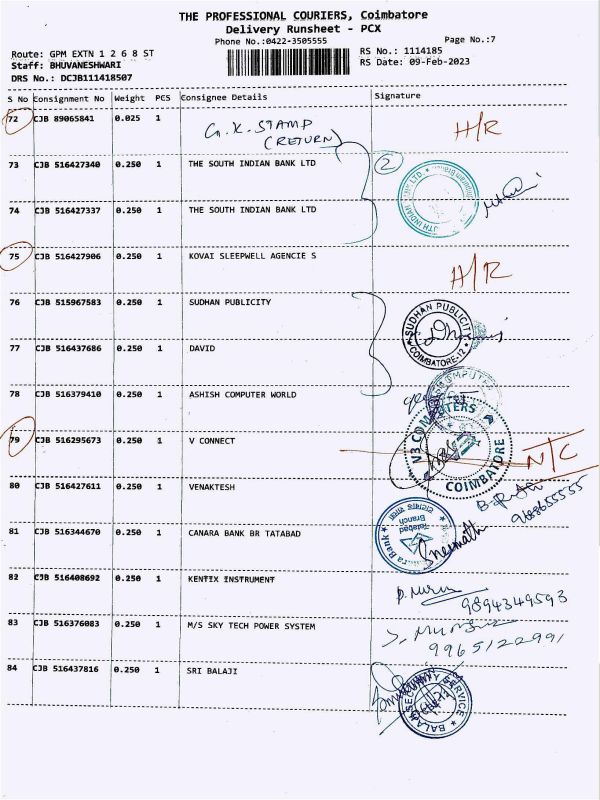 THE PROFESSIONAL COURIERS, Coimbatore
Delivery Runsheet - PCX
Phone No.:0422-3505555
Page No.:7
Route: GPM EXTN 1 2 6 8 ST
RS No.: 1114185
Staff: BHUVANESHWARI
RS Date: 09-Feb-2023
DRS No.: DCJB111418507
S No Consignment No Weight PCS Consignee Details Signature
72 CJB 89065841 0.025 1 G.K. STAMP H/R
(RETURN)
73 CJB 516427340 0.250 1 THE SOUTH INDIAN BANK LTD 2
74 CJB 516427337 0.250 1 THE SOUTH INDIAN BANK LTD
75 CJB 516427906 0.250 1 KOVAI SLEEPWELL AGENCIE S H/R
76 CJB 515967583 0.250 1 SUDHAN PUBLICITY
SUDHAN PUBLICITY
COIMBATORE-12
77 CJB 516437686 0.250 1 DAVID
78 CJB 516379410 0.250 1 ASHISH COMPUTER WORLD
79 CJB 516295673 0.250 1 V CONNECT NTC
N3 COMPUTERS
COIMBATORE
80 CJB 516427611 0.250 1 VENAKTESH
9688655555
81 CJB 516344670 0.250 1 CANARA BANK BR TATABAD
Tatabad
Branch
82 CJB 516408692 0.250 1 KENTIX INSTRUMENT
9894349593
83 CJB 516376083 0.250 1 M/S SKY TECH POWER SYSTEM
9965122991
84 CJB 516437816 0.250 1 SRI BALAJI